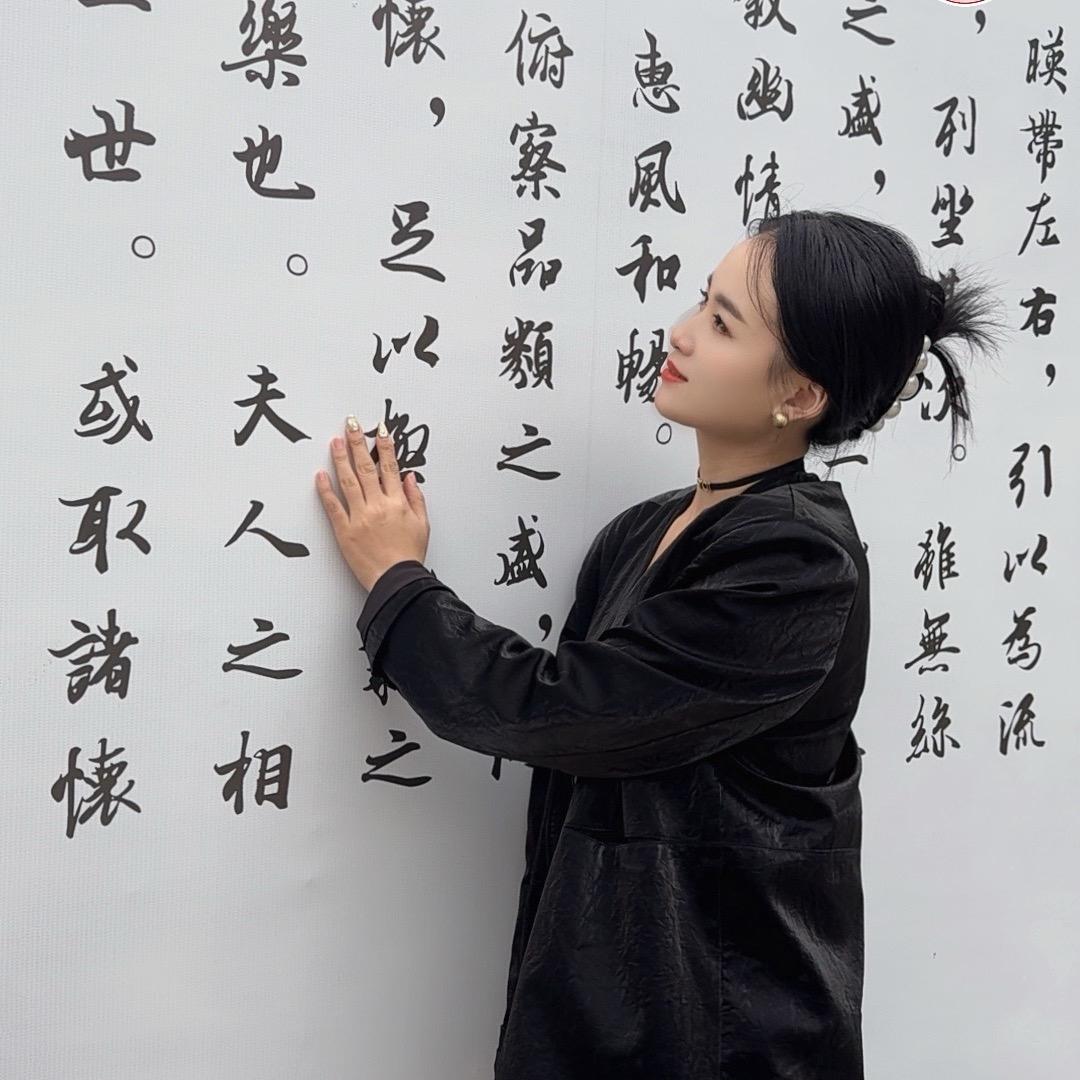 暎帶左右，引以為流
，列坐其次。雖無絲
之盛，一
敘幽情
惠風和暢。
俯察品類之盛，
懷，足以極之
樂也。夫人之相
世。或取諸懷